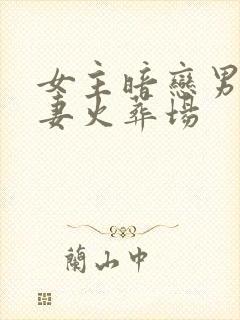 女主暗戀男
妻火葬場
蘭山中